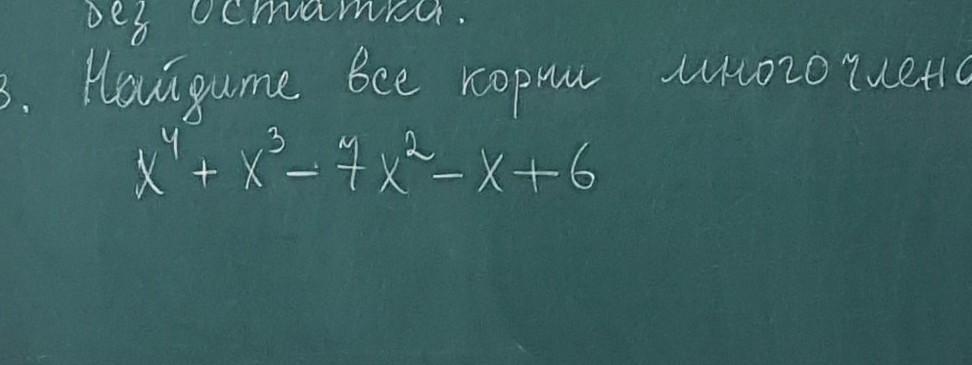 без остатка.
3. Найдите все корни многочлена
x⁴ + x³ - 7x² - x + 6